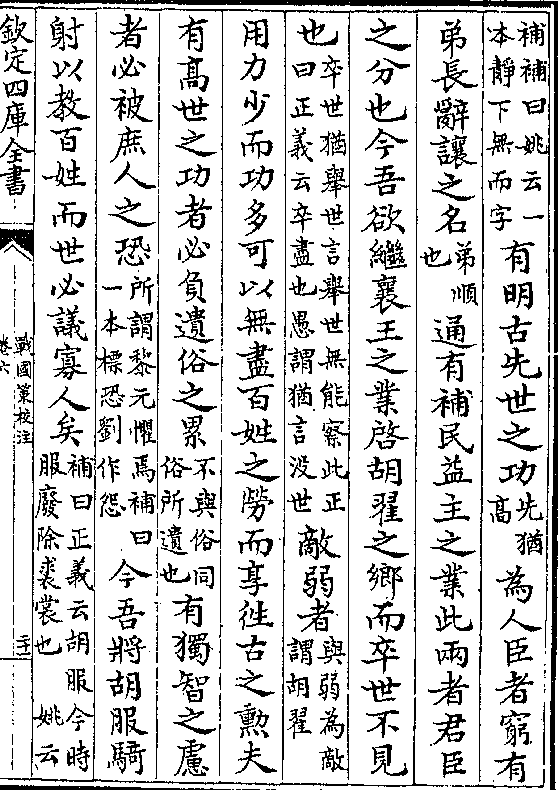 補補曰姚云一本靜下無而字有明古先世之功先猶高為人臣者窮有
弟長辭讓之名弟順也通有補民益主之業此兩者君臣
之分也今吾欲繼襄王之業啓胡翟之鄉而卒世不見
也卒世猶舉世言舉世無能察此正曰正義云卒盡也愚謂猶言没世敵弱者與弱為敵謂胡翟
用力少而功多可以無盡百姓之勞而享徃古之勲夫
有髙世之功者必負遺俗之累不與俗同俗所遺也有獨智之慮
者必被庶人之恐所謂黎元懼焉補曰一本標恐劉作怨今吾將胡服騎
射以教百姓而世必議寡人矣補曰正義云胡服今時服廢除裘裳也 姚云
欽定四庫全書
戰國策校注
卷六
二十